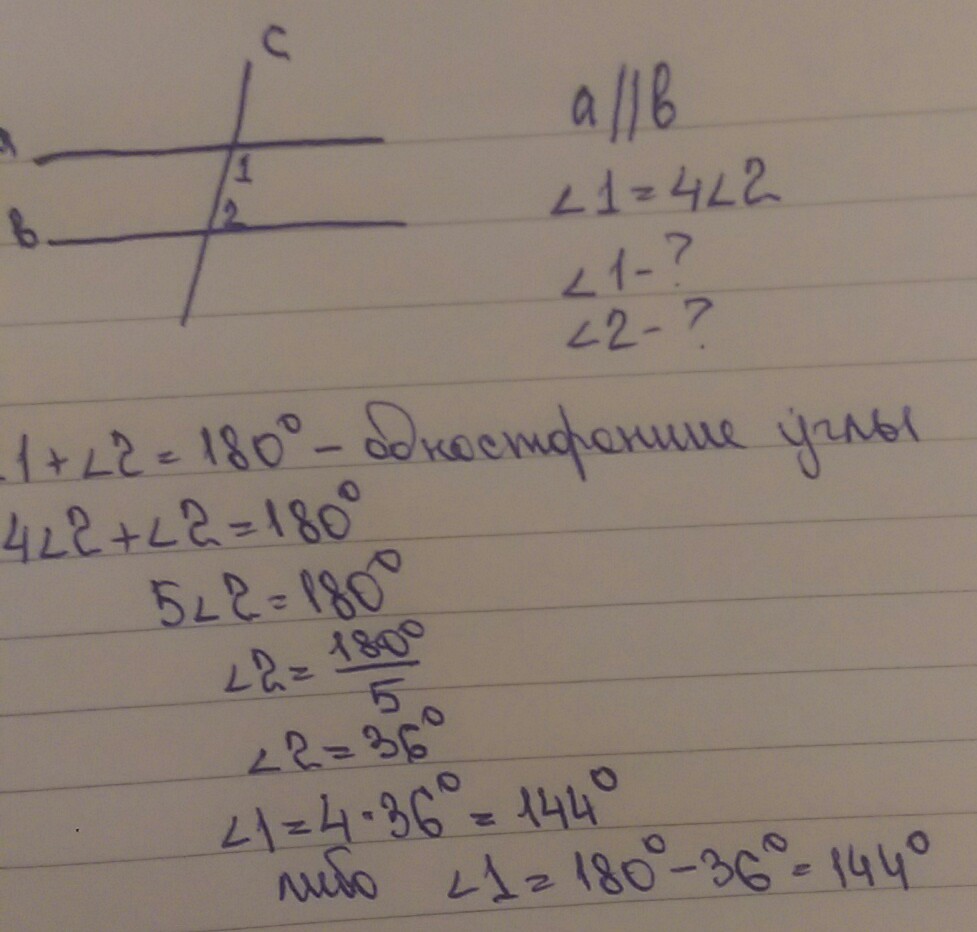 c
a
1
2
в
a || в
∠1 = 4∠2
∠1 - ?
∠2 - ?
∠1 + ∠2 = 180° - односторонние углы
4∠2 + ∠2 = 180°
5∠2 = 180°
∠2 = 180°/5
∠2 = 36°
∠1 = 4 · 36° = 144°
либо ∠1 = 180° - 36° = 144°